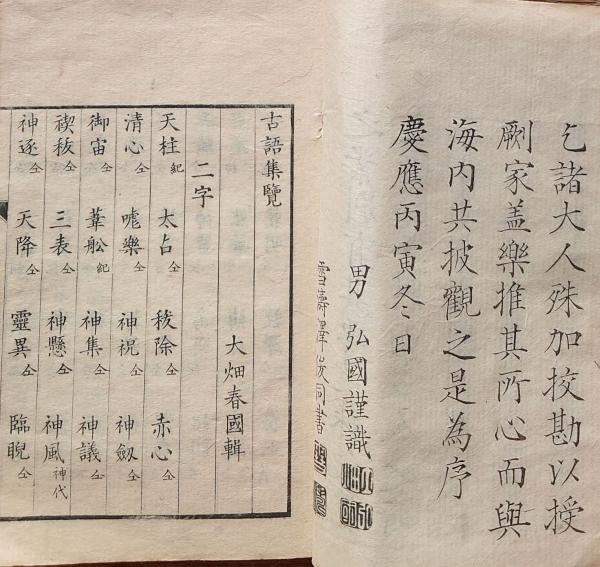 乞諸大人殊加挍勘以授
剞厥家蓋樂推其所心而與
海內共披觀之是為序
慶應丙寅冬日
男 弘國謹識
古語集覽
大畑春國輯
二字
天柱紀 太占仝 秡除仝 赤心仝
清心仝 㖸樂仝 神祝仝 神劔仝
御宙仝 葦舩紀 神集仝 神議仝
禊秡仝 三表仝 神懸仝 神風神代
神逐仝 天降仝 靈異仝 臨睨仝